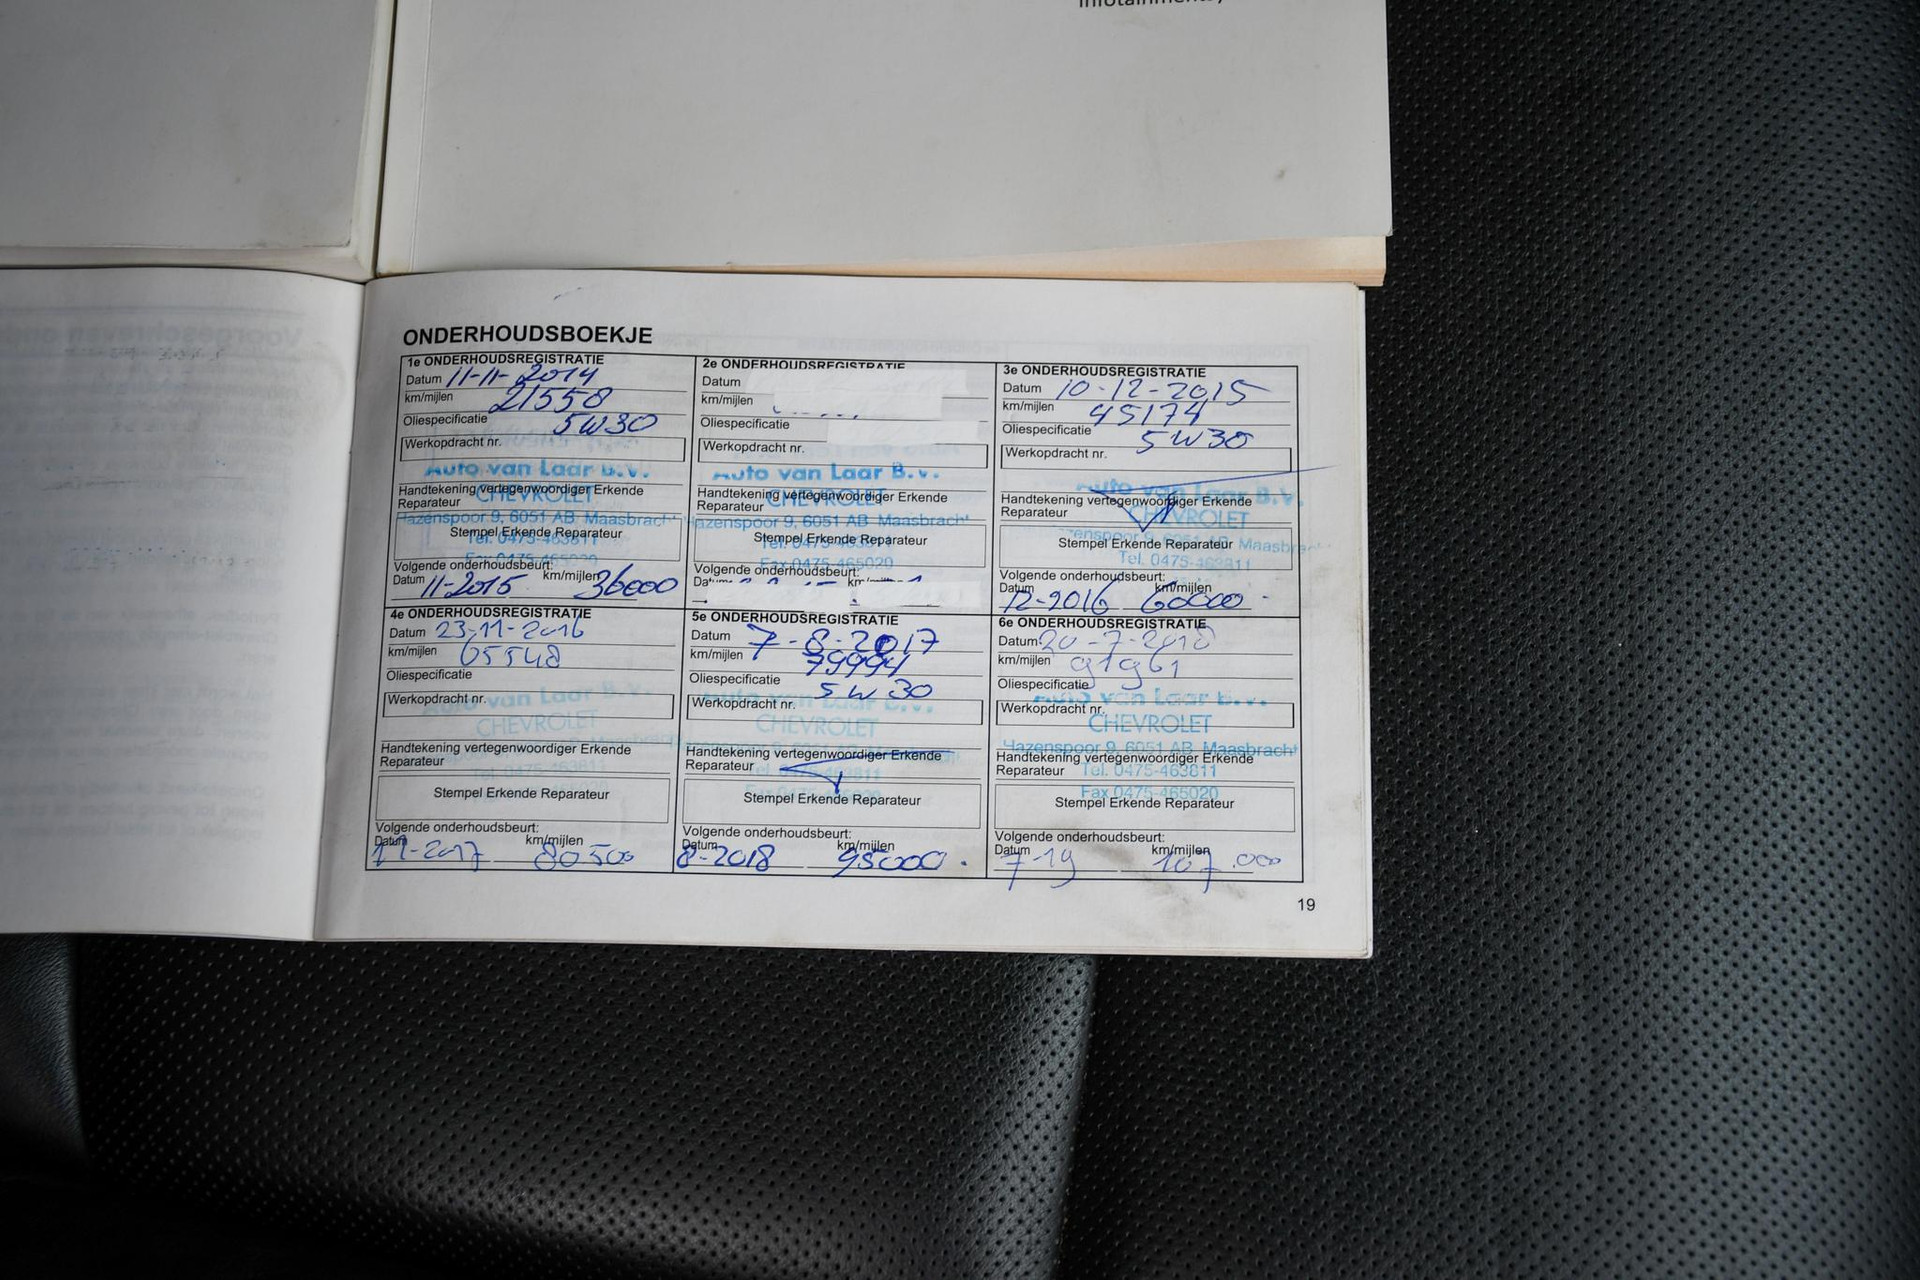 ONDERHOUDSBOEKJE
1e ONDERHOUDSREGISTRATIE
Datum 11-11-2014
km/mijlen 21558
Oliespecificatie 5W30
Werkopdracht nr.
Auto van Laar B.V.
CHEVROLET
Handtekening vertegenwoordiger Erkende
Reparateur
Hazenspoor 9, 6051 AB Maasbracht
Stempel Erkende Reparateur
Tel. 0475-463811
Fax 0475-465020
Volgende onderhoudsbeurt:
Datum 11-2015 km/mijlen 36000
2e ONDERHOUDSREGISTRATIE
Datum
km/mijlen
Oliespecificatie
Werkopdracht nr.
Auto van Laar B.V.
CHEVROLET
Handtekening vertegenwoordiger Erkende
Reparateur
Hazenspoor 9, 6051 AB Maasbracht
Stempel Erkende Reparateur
Tel. 0475-463811
Fax 0475-465020
Volgende onderhoudsbeurt:
3e ONDERHOUDSREGISTRATIE
Datum 10-12-2015
km/mijlen 45174
Oliespecificatie 5W30
Werkopdracht nr.
Auto van Laar B.V.
Handtekening vertegenwoordiger Erkende
Reparateur
CHEVROLET
Hazenspoor 9, 6051 AB Maasbracht
Stempel Erkende Reparateur
Tel. 0475-463811
Volgende onderhoudsbeurt:
Datum 12-2016 km/mijlen 60000
4e ONDERHOUDSREGISTRATIE
Datum 23-11-2016
km/mijlen 65548
Oliespecificatie
Werkopdracht nr.
Auto van Laar B.V.
CHEVROLET
Handtekening vertegenwoordiger Erkende
Reparateur
Tel. 0475-463811
Stempel Erkende Reparateur
Volgende onderhoudsbeurt:
Datum 11-2017 km/mijlen 80500
5e ONDERHOUDSREGISTRATIE
Datum 7-8-2017
km/mijlen 79994
Oliespecificatie 5W30
Werkopdracht nr.
Auto van Laar B.V.
CHEVROLET
Handtekening vertegenwoordiger Erkende
Reparateur
Tel. 0475-463811
Stempel Erkende Reparateur
Volgende onderhoudsbeurt:
Datum 8-2018 km/mijlen 95000
6e ONDERHOUDSREGISTRATIE
Datum 20-7-2018
km/mijlen 91961
Oliespecificatie
Auto van Laar B.V.
Werkopdracht nr.
CHEVROLET
Hazenspoor 9, 6051 AB Maasbracht
Handtekening vertegenwoordiger Erkende
Reparateur
Tel. 0475-463811
Fax 0475-465020
Stempel Erkende Reparateur
Volgende onderhoudsbeurt:
Datum 7-19 km/mijlen 107.000
19